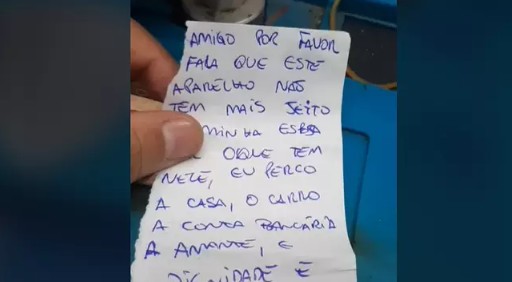 AMIGO POR FAVOR
FALA QUE ESTE
APARELHO NÃO
TEM MAIS JEITO
MINHA ESPOSA
OQUE TEM
NELE, EU PERCO
A CASA, O CARRO
A CONTA BANCÁRIA
A AMANTE, E
DIGNIDADE E